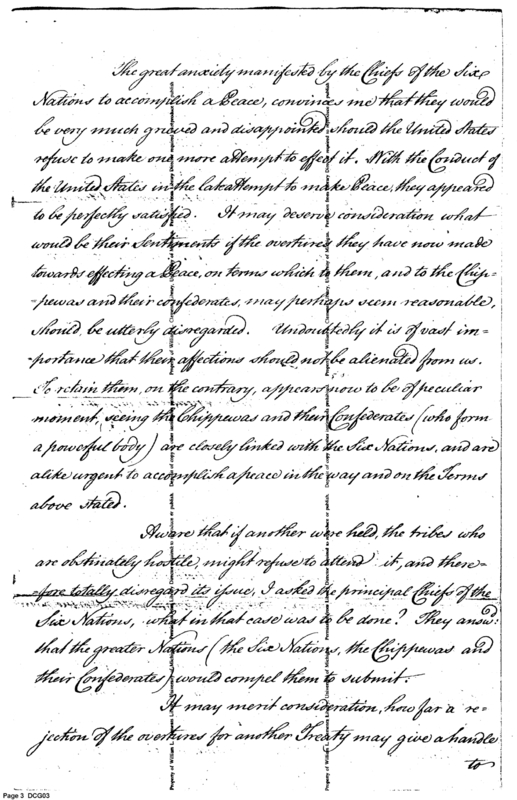 The great anxiety manifested by the Chiefs of the Six
Nations to accomplish a Peace, convinces me that they would
be very much grieved and disappointed should the United States
refuse to make one more attempt to effect it. With the Conduct of
the United States in the late attempt to make Peace, they appeared
to be perfectly satisfied. It may deserve consideration what
would be their Sentiments if the overtures they have now made
towards effecting a Peace, on terms which to them, and to the Chip-
-pewas and their confederates, may perhaps seem reasonable,
should be utterly disregarded. Undoubtedly it is of vast im-
-portance that their affections should not be alienated from us.
To retain them, on the contrary, appears now to be of peculiar
moment, seeing the Chippewas and their Confederates (who form
a powerful body) are closely linked with the Six Nations, and are
alike urgent to accomplish a peace in the way and on the Terms
above stated.
Aware that if another were held, the tribes who
are obstinately hostile, might refuse to attend it, and there-
-fore totally disregard its issue, I asked the principal Chiefs of the
Six Nations, what in that case was to be done? They answd:
that the greater Nations (the Six Nations, the Chippewas and
their Confederates) would compel them to submit.
It may merit consideration, how far a re-
jection of the overtures for another Treaty may give a handle
to
Page 3 DCG03